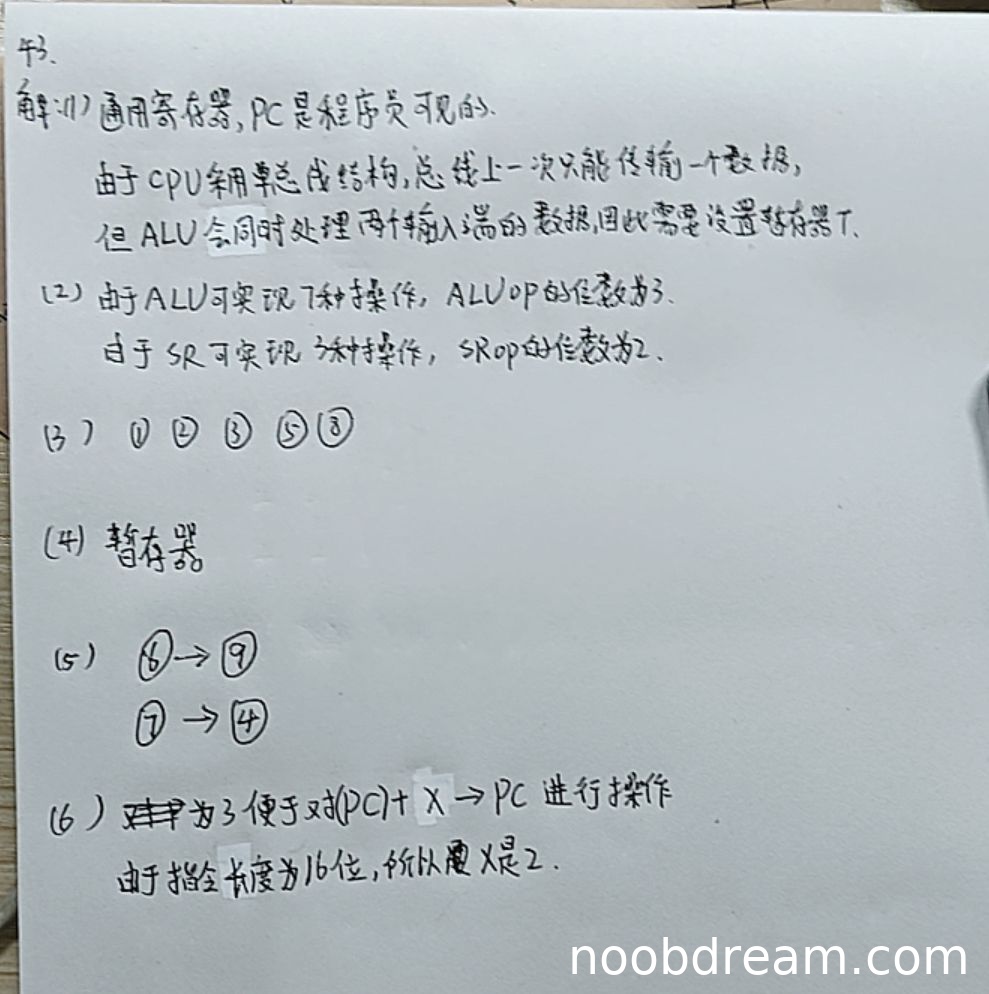 43.
解:(1) 通用寄存器,PC是程序员可见的.
由于CPU采用单总线结构,总线上一次只能传输一个数据,
但ALU会同时处理两个输入端的数据,因此需要设置暂存器T.
(2) 由于ALU可实现7种操作, ALUop的位数为3.
由于SR可实现3种操作, SRop的位数为2.
(3) ① ② ③ ⑤ ⑧
(4) 暂存器
(5) ⑥→⑨
⑦→④
(6) 便于对(PC)+X→PC进行操作
由于指令长度为16位,所以X是2.
noobdream.com